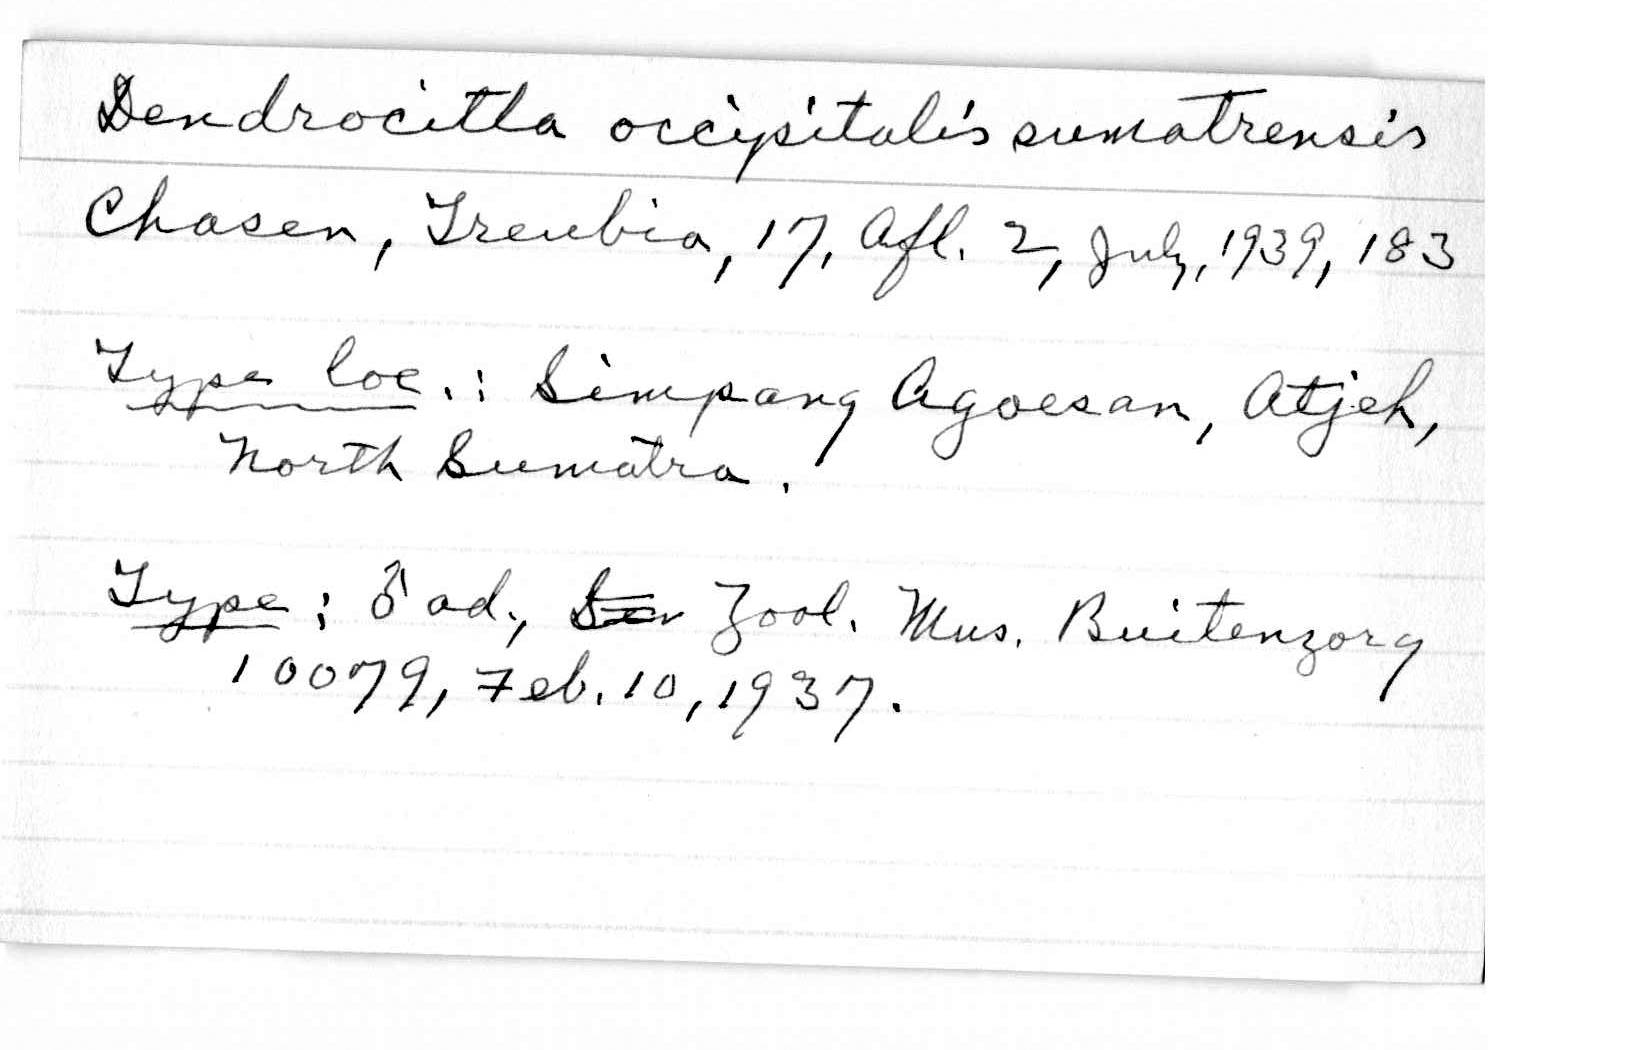 Dendrocitta occipitalis sumatrensis
Chasen, Treubia, 17, Afl. 2, July, 1939, 183
Type loc.: Simpang Agoesan, Atjeh,
North Sumatra.
Type: ♂ ad., Zool. Mus. Buitenzorg
10079, Feb. 10, 1937.